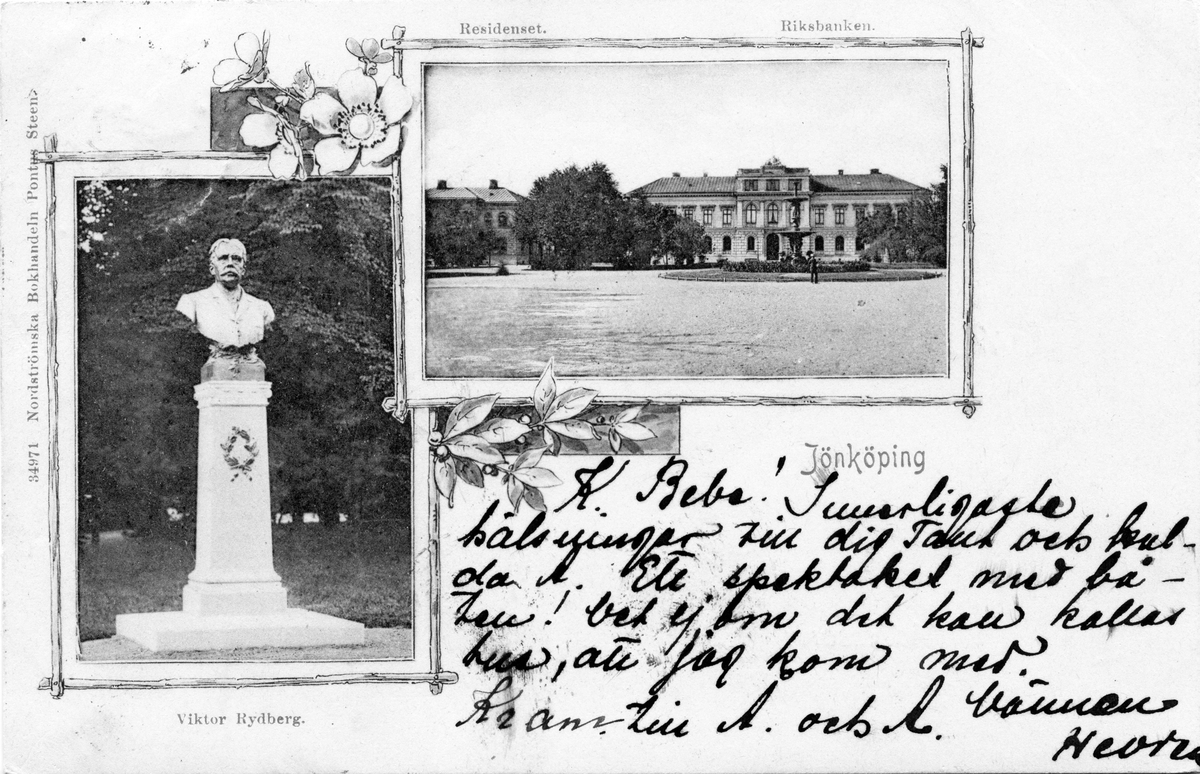 Residenset.
Riksbanken.
34971 Nordströmska Bokhandeln Pontus Steen
Viktor Rydberg.
Jönköping
K. Bebe! Innerligaste
hälsningar till dig Tant och kul-
da A. Ett spektakel med bå-
ten! Vet ej om det kan kallas
tur, att jag kom med.
Kram till A. och A. Vännen